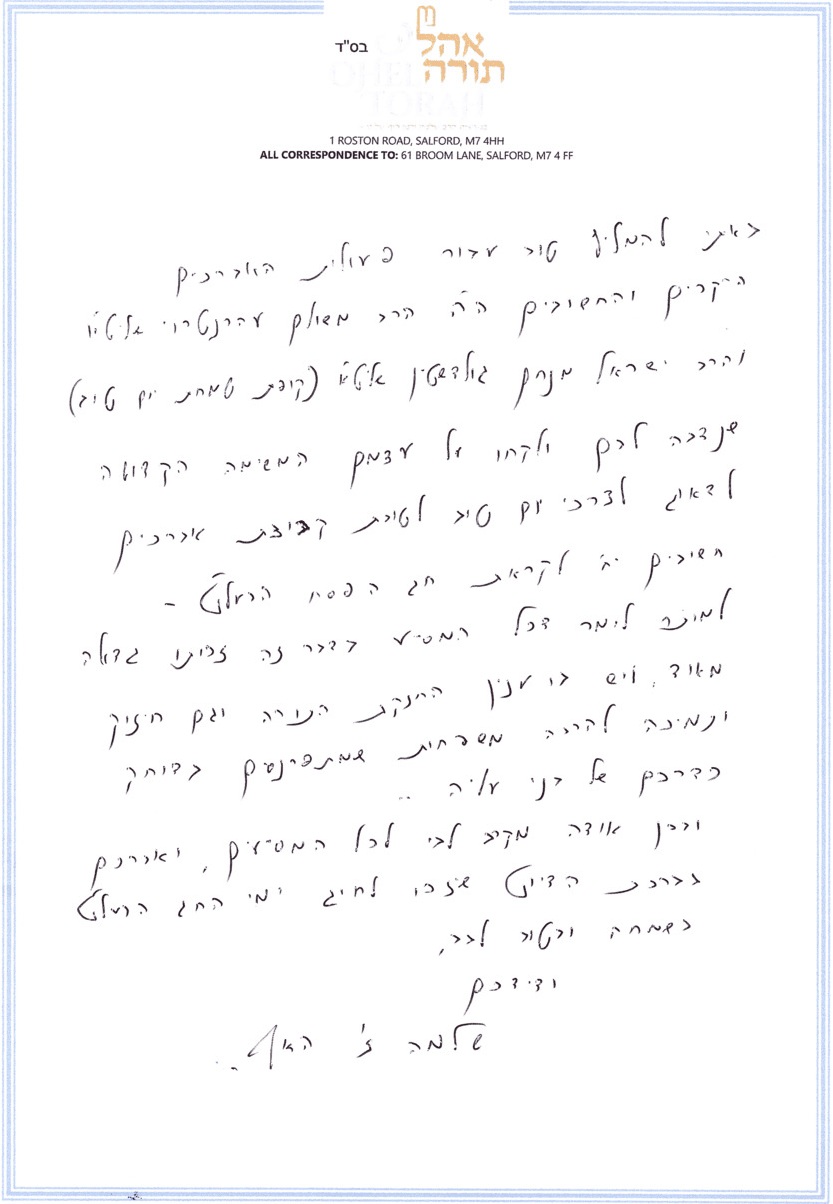 בס"ד
אהל
תורה
OHEL
TORAH
1 ROSTON ROAD, SALFORD, M7 4HH
ALL CORRESPONDENCE TO: 61 BROOM LANE, SALFORD, M7 4 FF
באתי להמליץ טוב עבור פעולת האברכים
היקרים והחשובים ה"ה הרב משולם עהרנטרוי שליט"א
והרב ישראל מנחם גולדשטין שליט"א (קופת שמחת יום טוב)
שנדבה לבם ולקחו על עצמם המשימה הקדושה
לדאוג לצרכי יום טוב לטובת קבוצת אברכים
חשובים יח' לקראת חג הפסח הבעל"ט –
למותר לומר דכל המסייע בדבר זה זכותו גדולה
מאוד, ויש בו ענין החזקת התורה וגם חיזוק
ותמיכה להרבה משפחות שמתפרנסים בדוחק
כדרכם של בני עליה ..
ובכן אודה מקרב לבי לכל המסייעים, ואברכם
בברכת הדיוט שיזכו לחוג ימי החג הבעל"ט
בשמחה ובטוב לבב,
ידידכם
שלמה ז'